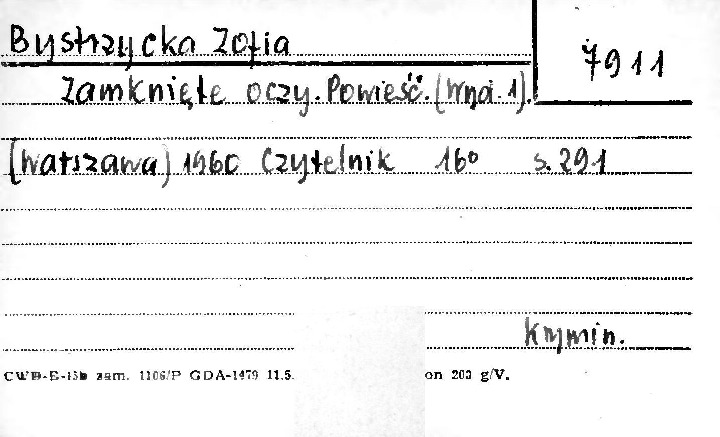 Bystrzycka Zofia
7911
Zamknięte oczy. Powieść. (Wyd. 1).
(Warszawa) 1960 Czytelnik 16° s. 291
Krymin.
CWD-E-15b zam. 1106/P GDA-1479 11.5. on 202 g/V.